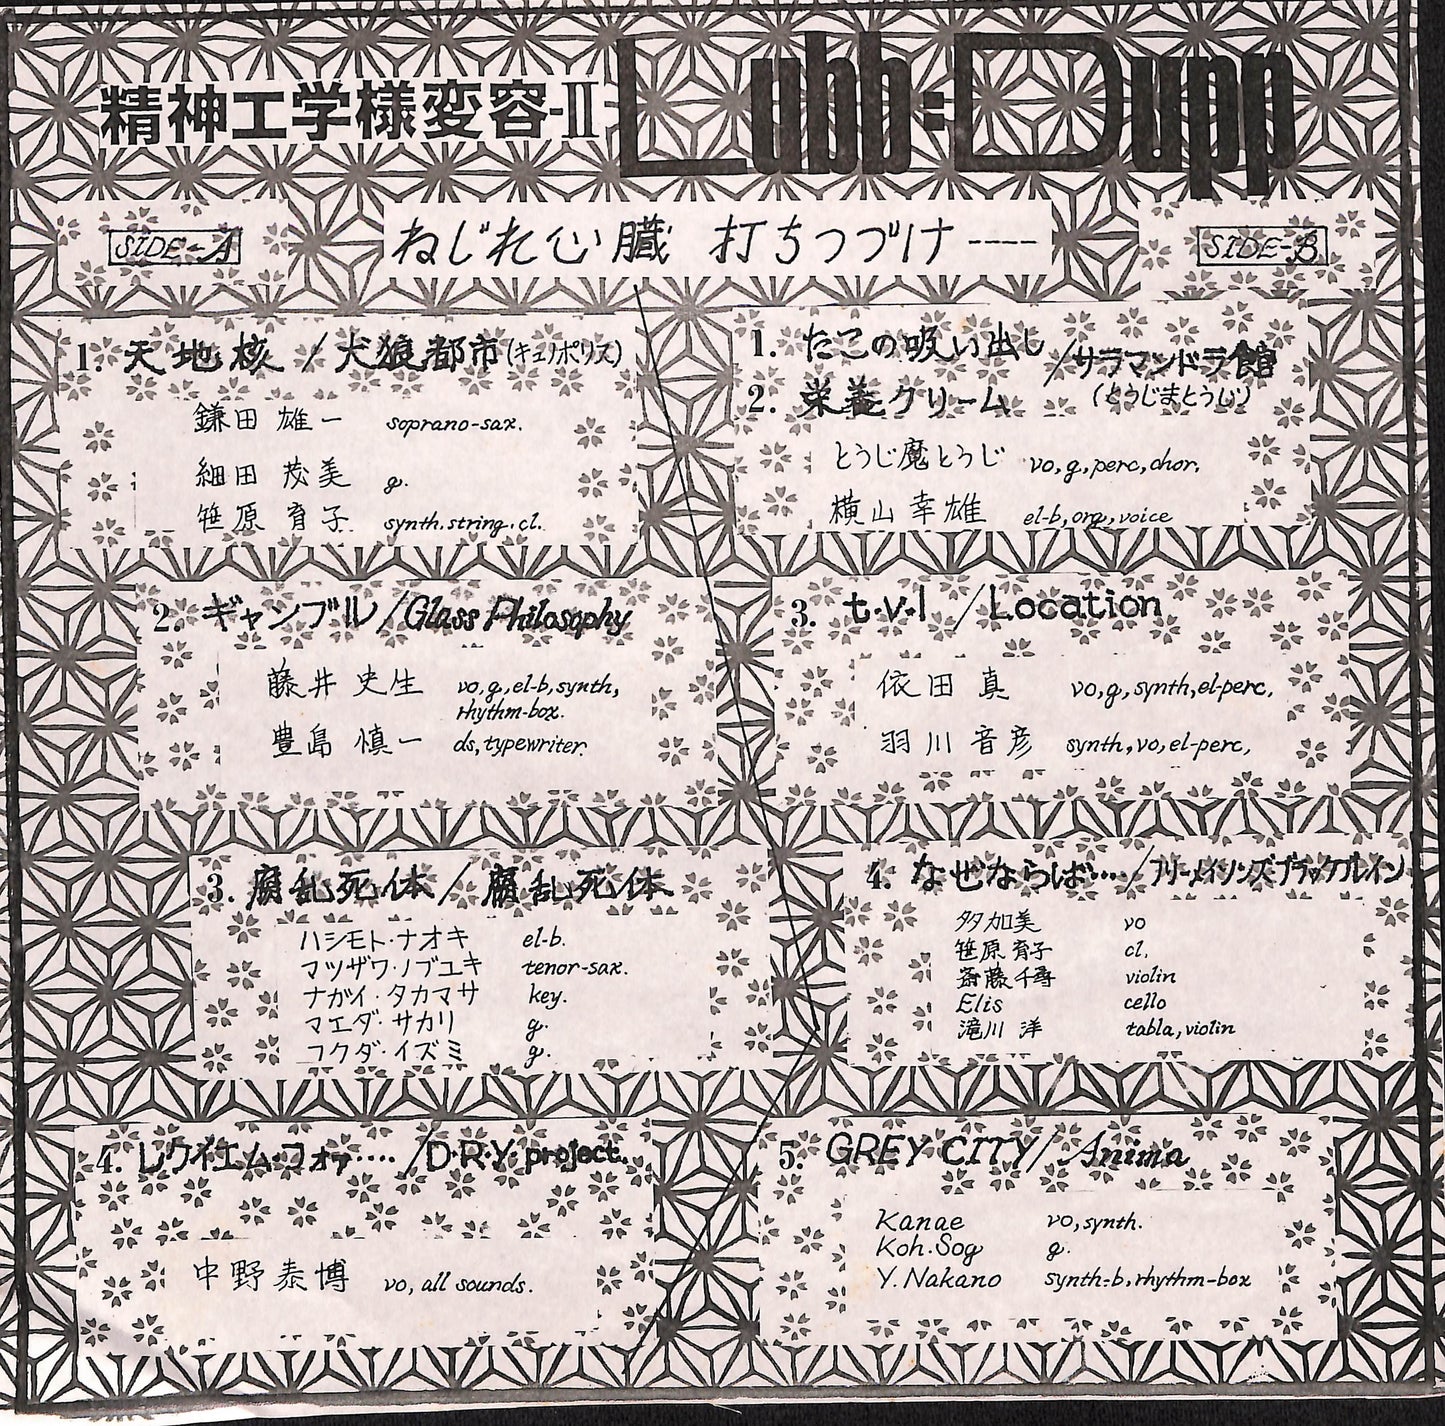 精神工学様変容-II Lubb=Dupp
ねじれ心臓 打ちつづけ----
SIDE-A
1. 天地核 / 犬狼都市(キュノポリス)
鎌田 雄一 soprano-sax.
細田 茂美 g.
笹原 育子 synth.string.cl.
2. ギャンブル/Glass Philosophy
藤井 史生 vo,g,el-b,synth,
rhythm-box.
豊島 慎一 ds,typewriter.
3. 腐乱死体 / 腐乱死体
ハシモト・ナオキ el-b.
マツザワ・ノブユキ tenor-sax.
ナガイ・タカマサ key.
マエダ・サカリ g.
フクダ・イズミ g.
4. レクイエム・フォア‥‥ /D・R・Y・project.
中野 泰博 vo, all sounds.
SIDE-B
1. たこの吸い出し /サラマンドラ館
2. 栄養クリーム (とうじまとうじ)
とうじ魔とうじ vo,g,perc,chor,
横山 幸雄 el-b,org,voice
3. t・v・l /Location
依田 真 vo,g,synth,el-perc,
羽川 音彦 synth,vo,el-perc,
4. なぜならば‥‥/フリーメイソンズブラックルイン
多加美 vo
笹原 育子 cl,
斎藤 千尋 violin
Elis cello
滝川 洋 tabla,violin
5. GREY CITY/ Anima
Kanae vo,synth.
Koh.Sog g.
Y.Nakano synth-b,rhythm-box